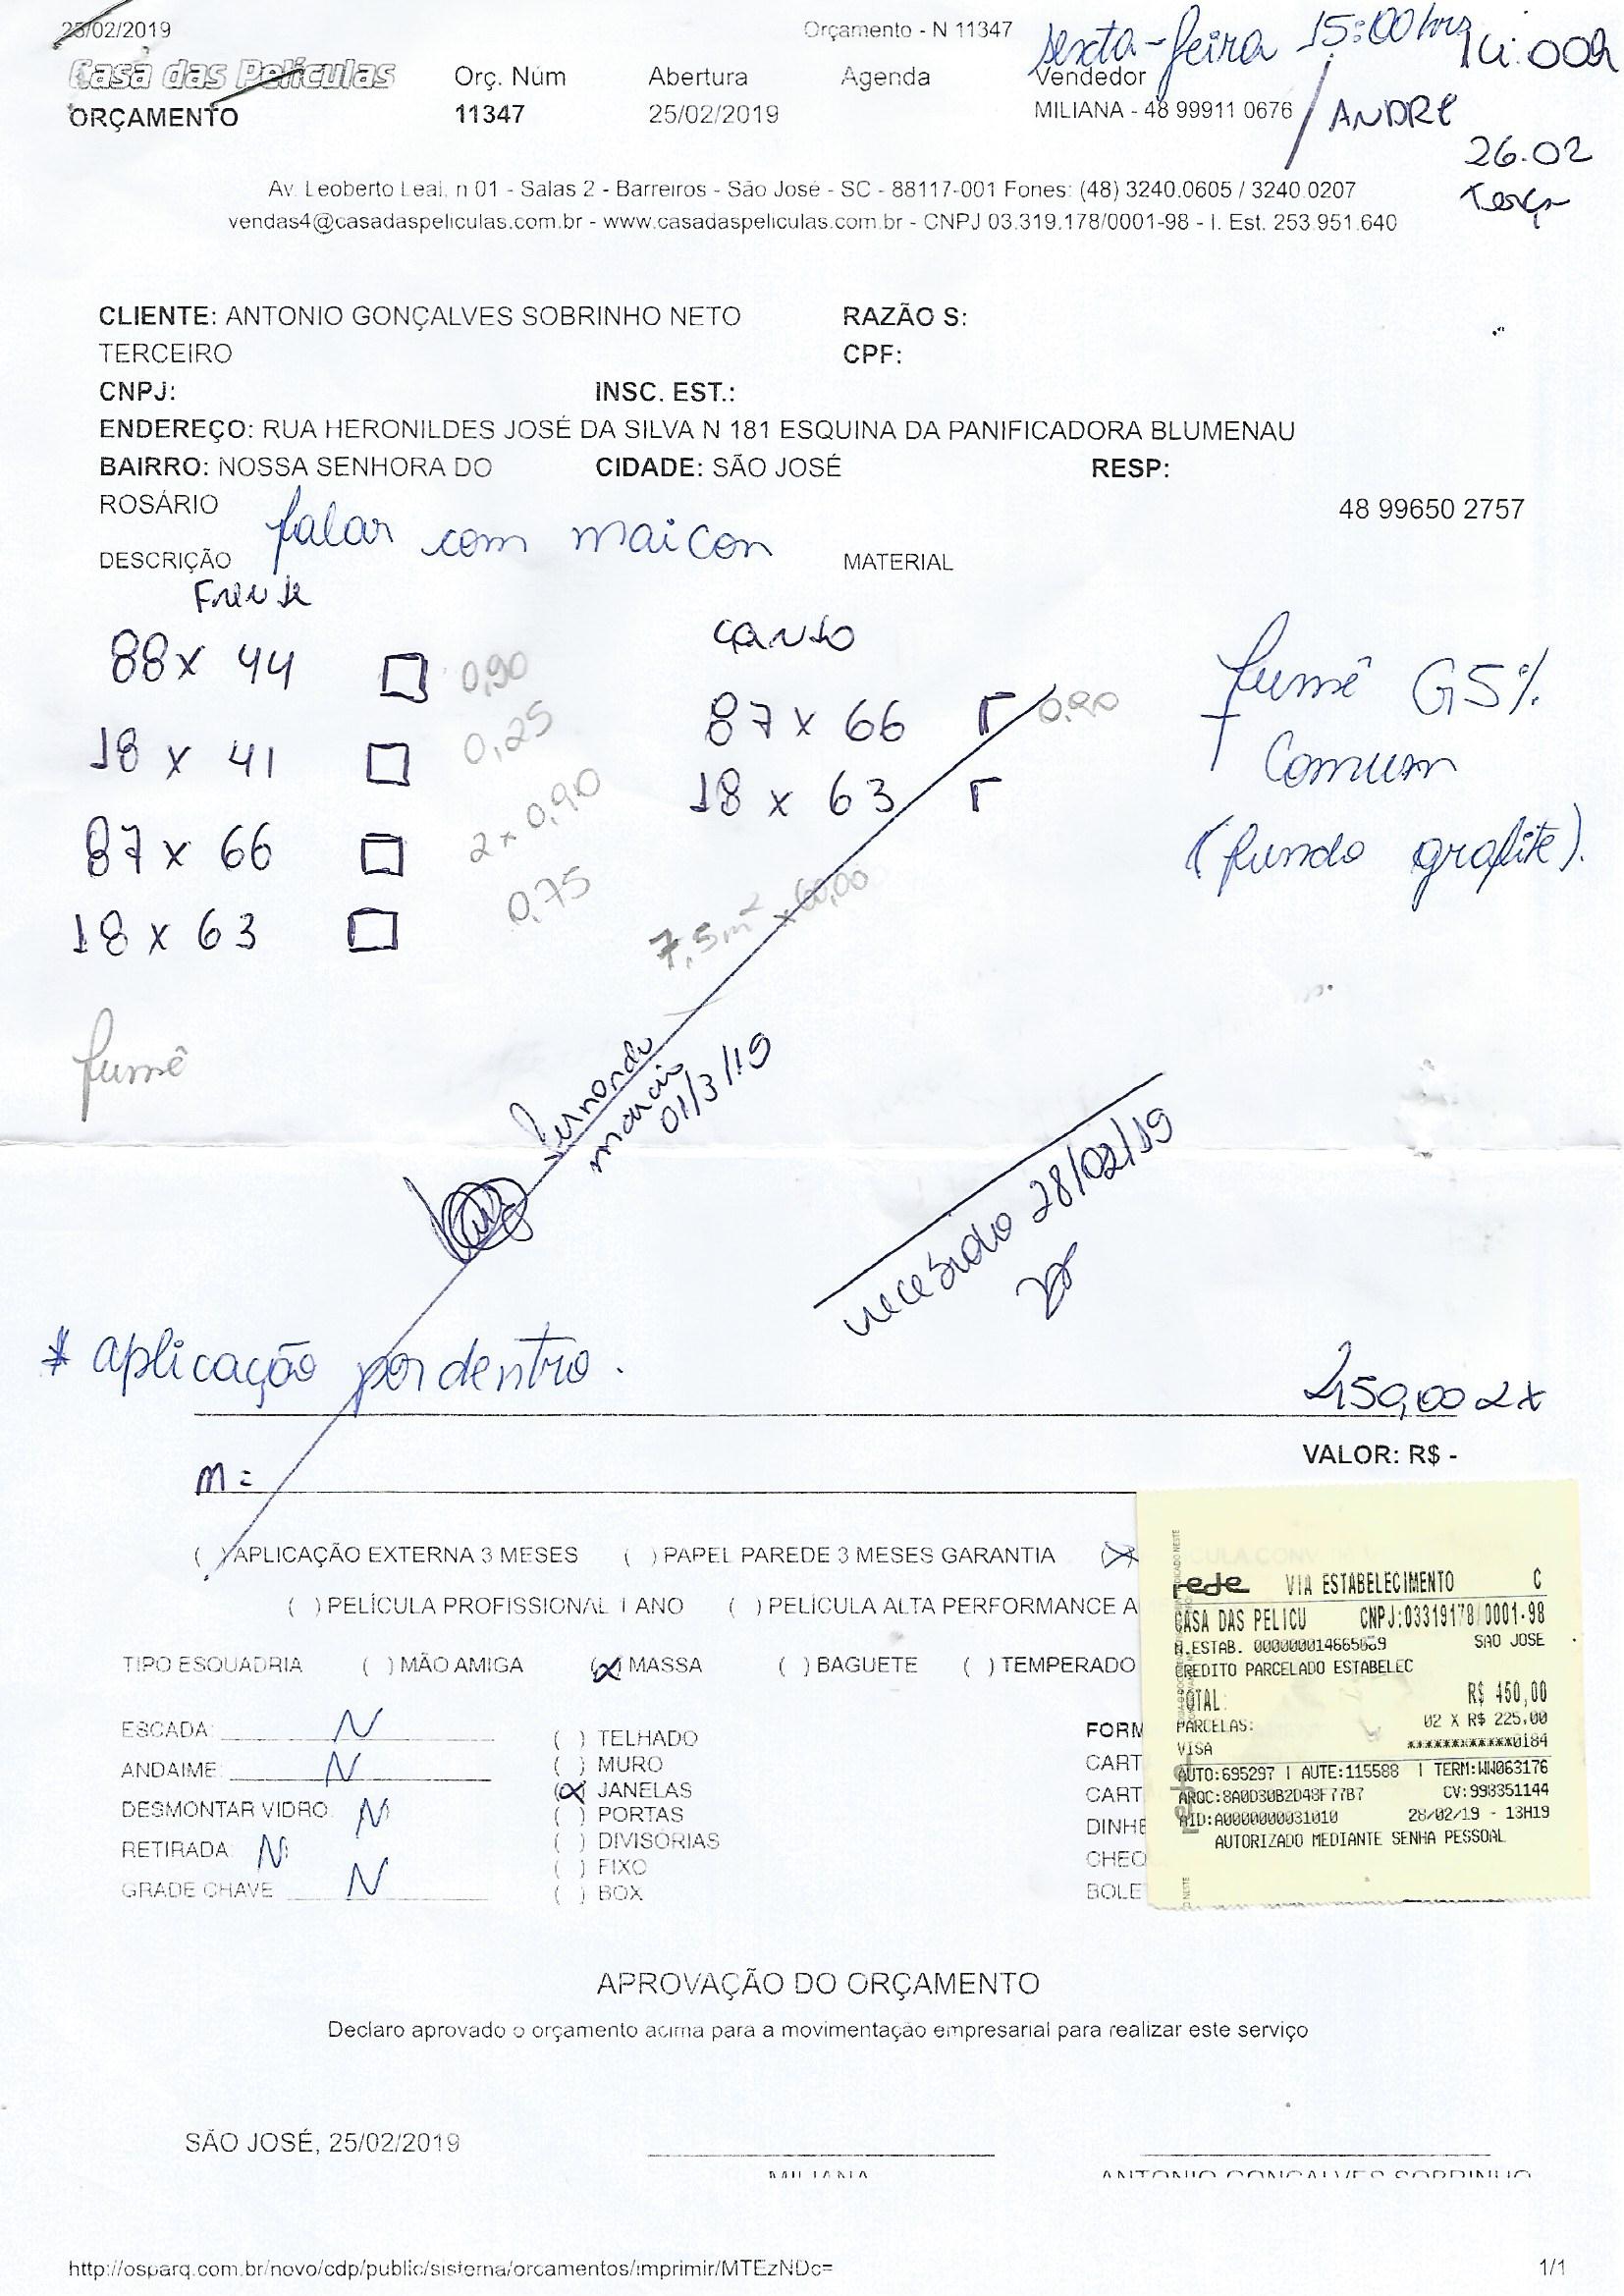 25/02/2019
Orçamento - N 11347
sexta-feira 15:00 hrs
14:00h
Casa das Películas
Orç. Núm
Abertura
Agenda
Vendedor
ORÇAMENTO
11347
25/02/2019
MILIANA - 48 99911 0676
/ ANDRÉ
26.02
Terça
Av. Leoberto Leal, n 01 - Salas 2 - Barreiros - São José - SC - 88117-001 Fones: (48) 3240.0605 / 3240.0207
vendas4@casadaspeliculas.com.br - www.casadaspeliculas.com.br - CNPJ 03.319.178/0001-98 - I. Est. 253.951.640
CLIENTE: ANTONIO GONÇALVES SOBRINHO NETO
RAZÃO S:
TERCEIRO
CPF:
CNPJ:
INSC. EST.:
ENDEREÇO: RUA HERONILDES JOSÉ DA SILVA N 181 ESQUINA DA PANIFICADORA BLUMENAU
BAIRRO: NOSSA SENHORA DO
CIDADE: SÃO JOSÉ
RESP:
ROSÁRIO
48 99650 2757
falar com maicon
DESCRIÇÃO
MATERIAL
Frente
88 x 44 0,90
18 x 41 0,25
87 x 66 2 x 0,90
18 x 63 0,75
canto
87 x 66 0,90
18 x 63
7,5m² x 60,00
fumê G5%
Comum
(fundo grafite).
fumê
Fernando
marcio
01/3/19
recebido 28/02/19
* aplicação por dentro.
450,00 2x
VALOR: R$ -
m =
( ) APLICAÇÃO EXTERNA 3 MESES
( ) PAPEL PAREDE 3 MESES GARANTIA
(X
( ) PELÍCULA PROFISSIONAL 1 ANO
( ) PELÍCULA ALTA PERFORMANCE A
TIPO ESQUADRIA
( ) MÃO AMIGA
(X) MASSA
( ) BAGUETE
( ) TEMPERADO
ESCADA: N
ANDAIME: N
DESMONTAR VIDRO: N
RETIRADA: N
GRADE CHAVE N
( ) TELHADO
( ) MURO
(X) JANELAS
( ) PORTAS
( ) DIVISÓRIAS
( ) FIXO
( ) BOX
FORM
CART
CART
DINHE
CHEQ
BOLE
rede VIA ESTABELECIMENTO C
CASA DAS PELICU CNPJ:03319178/0001-98
N.ESTAB. 000000014665669 SAO JOSE
CREDITO PARCELADO ESTABELEC
TOTAL: R$ 450,00
PARCELAS: 02 X R$ 225,00
VISA ************0184
AUTO:695297 | AUTE:115588 | TERM:WW063176
ARQC:8A0D30B2D48F77B7 CV:998351144
AID:A0000000031010 28/02/19 - 13H19
AUTORIZADO MEDIANTE SENHA PESSOAL
APROVAÇÃO DO ORÇAMENTO
Declaro aprovado o orçamento acima para a movimentação empresarial para realizar este serviço
SÃO JOSÉ, 25/02/2019
MILIANA
ANTONIO GONÇALVES SOBRINHO
http://osparq.com.br/novo/cdp/public/sistema/orcamentos/imprimir/MTEzNDc=
1/1